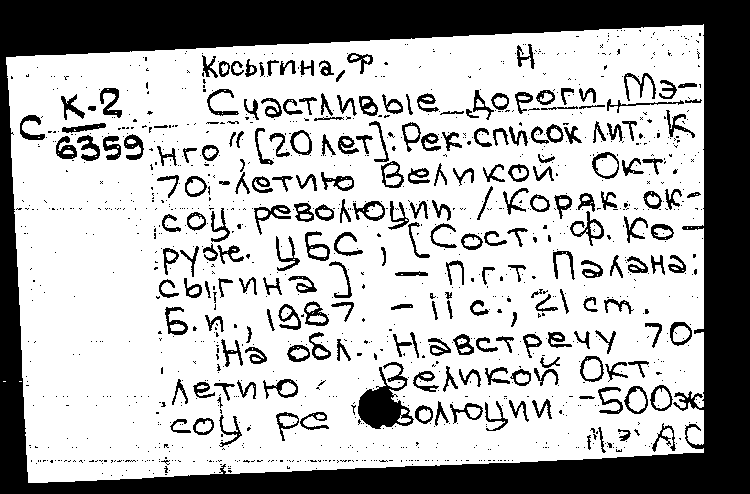 Косыгина, Ф. Н
С К-2
6359
Счастливые дороги „Мэ-
нго“, [20 лет]: Рек. список лит. к
70-летию Великой Окт.
соц. революции / Коряк. ок-
руж. ЦБС ; [Сост.: Ф. Ко-
сыгина]. — П.г.т. Палана:
Б.и., 1987. – 11 с.; 21 cm.
На обл.: Навстречу 70-
летию Великой Окт.
соц. ре волюции. -500эк
АС